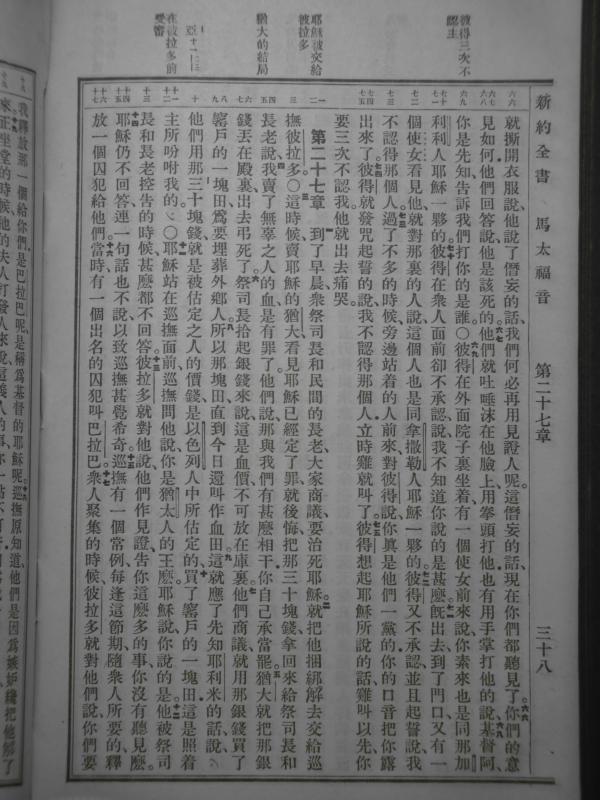 新約全書 馬太福音 第二十七章 三十八
彼得三次不認主
耶穌被交給彼拉多
猶大的結局
在彼拉多前受審
就撕開衣服、說、他說了僭妄的話、我們何必再用見證人呢。這僭妄的話、現在你們都聽見了。你們的意
見如何。他們回答說、他是該死的。他們就吐唾沫在他臉上、用拳頭打他、也有用手掌打他的、說、基督阿、
你是先知、告訴我們打你的是誰。〇彼得在外面院子裏坐着、有一個使女前來說、你素來也是同那加
利利人耶穌一夥的。彼得在衆人面前卻不承認、說、我不知道你說的是甚麼。旣出去、到了門口、又有一
個使女看見他、就對那裏的人說、這個人也是同拿撒勒人耶穌一夥的。彼得又不承認、並且起誓說、我
不認得那個人。過了不多的時候、旁邊站着的人前來、對彼得說、你眞是他們一黨的、你的口音把你露
出來了。彼得就發咒起誓的說、我不認得那個人。立時雞就叫了。彼得想起耶穌所說的話、雞叫以先、你
要三次不認我。他就出去痛哭。
第二十七章 到了早晨、衆祭司長和民間的長老、大家商議、要治死耶穌、就把他捆綁解去、交給巡
撫彼拉多。〇這時候、賣耶穌的猶大、看見耶穌已經定了罪、就後悔、把那三十塊錢、拿回來給祭司長和
長老說、我賣了無辜之人的血、是有罪了。他們說、那與我們有甚麼相干、你自己承當罷。猶大就把那銀
錢丟在殿裏、出去弔死了。祭司長拾起銀錢來說、這是血價、不可放在庫裏。他們商議、就用那銀錢買了
窰戶的一塊田、爲要埋葬外鄉人。所以那塊田、直到今日還叫作血田。這就應了先知耶利米的話、說、
他們用那三十塊錢、就是被估定之人的價錢、是以色列人中所估定的、買了窰戶的一塊田、這是照着
主所吩咐我的。〇耶穌站在巡撫面前、巡撫問他說、你是猶太人的王麼。耶穌說、你說的是。他被祭司
長和長老控告的時候、甚麼都不回答。彼拉多就對他說、他們作見證、告你這麼多的事、你沒有聽見麼。
耶穌仍不回答、連一句話也不說、以致巡撫甚覺希奇。巡撫有一個常例、每逢這節期、隨衆人所要的、釋
放一個囚犯給他們。當時有一個出名的囚犯叫巴拉巴。衆人聚集的時候、彼拉多就對他們說、你們要
我釋放那一個給你們、是巴拉巴呢、是稱爲基督的耶穌呢。巡撫原知道他們是因爲嫉妒纔把他解了